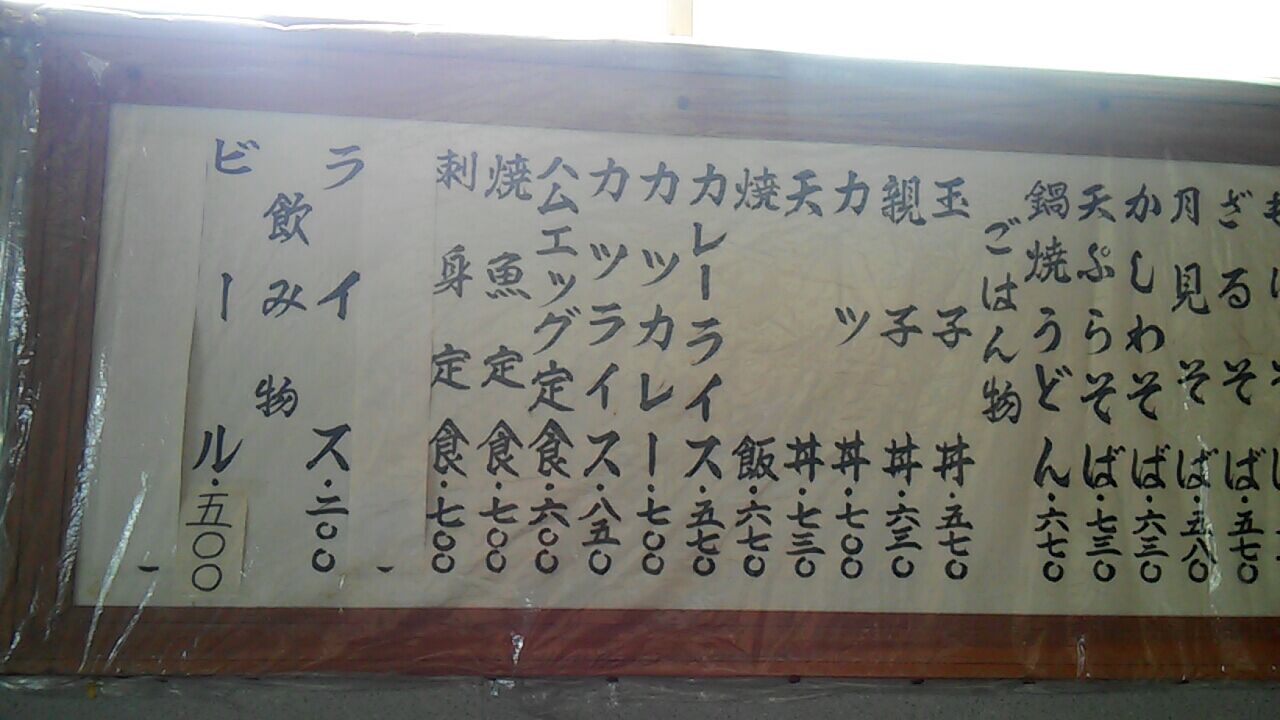 ざるそば・五七〇
月見そば・五八〇
かしわそば・六三〇
天ぷらそば・七三〇
鍋焼うどん・六七〇
ごはん物
玉子丼・五七〇
親子丼・六三〇
カツ丼・七〇〇
天丼・七三〇
焼飯・六七〇
カレーライス・五七〇
カツカレー・七〇〇
カツライス・八五〇
ハムエッグ定食・六〇〇
焼魚定食・七〇〇
刺身定食・七〇〇
ライス・二〇〇
飲み物
ビール・五〇〇